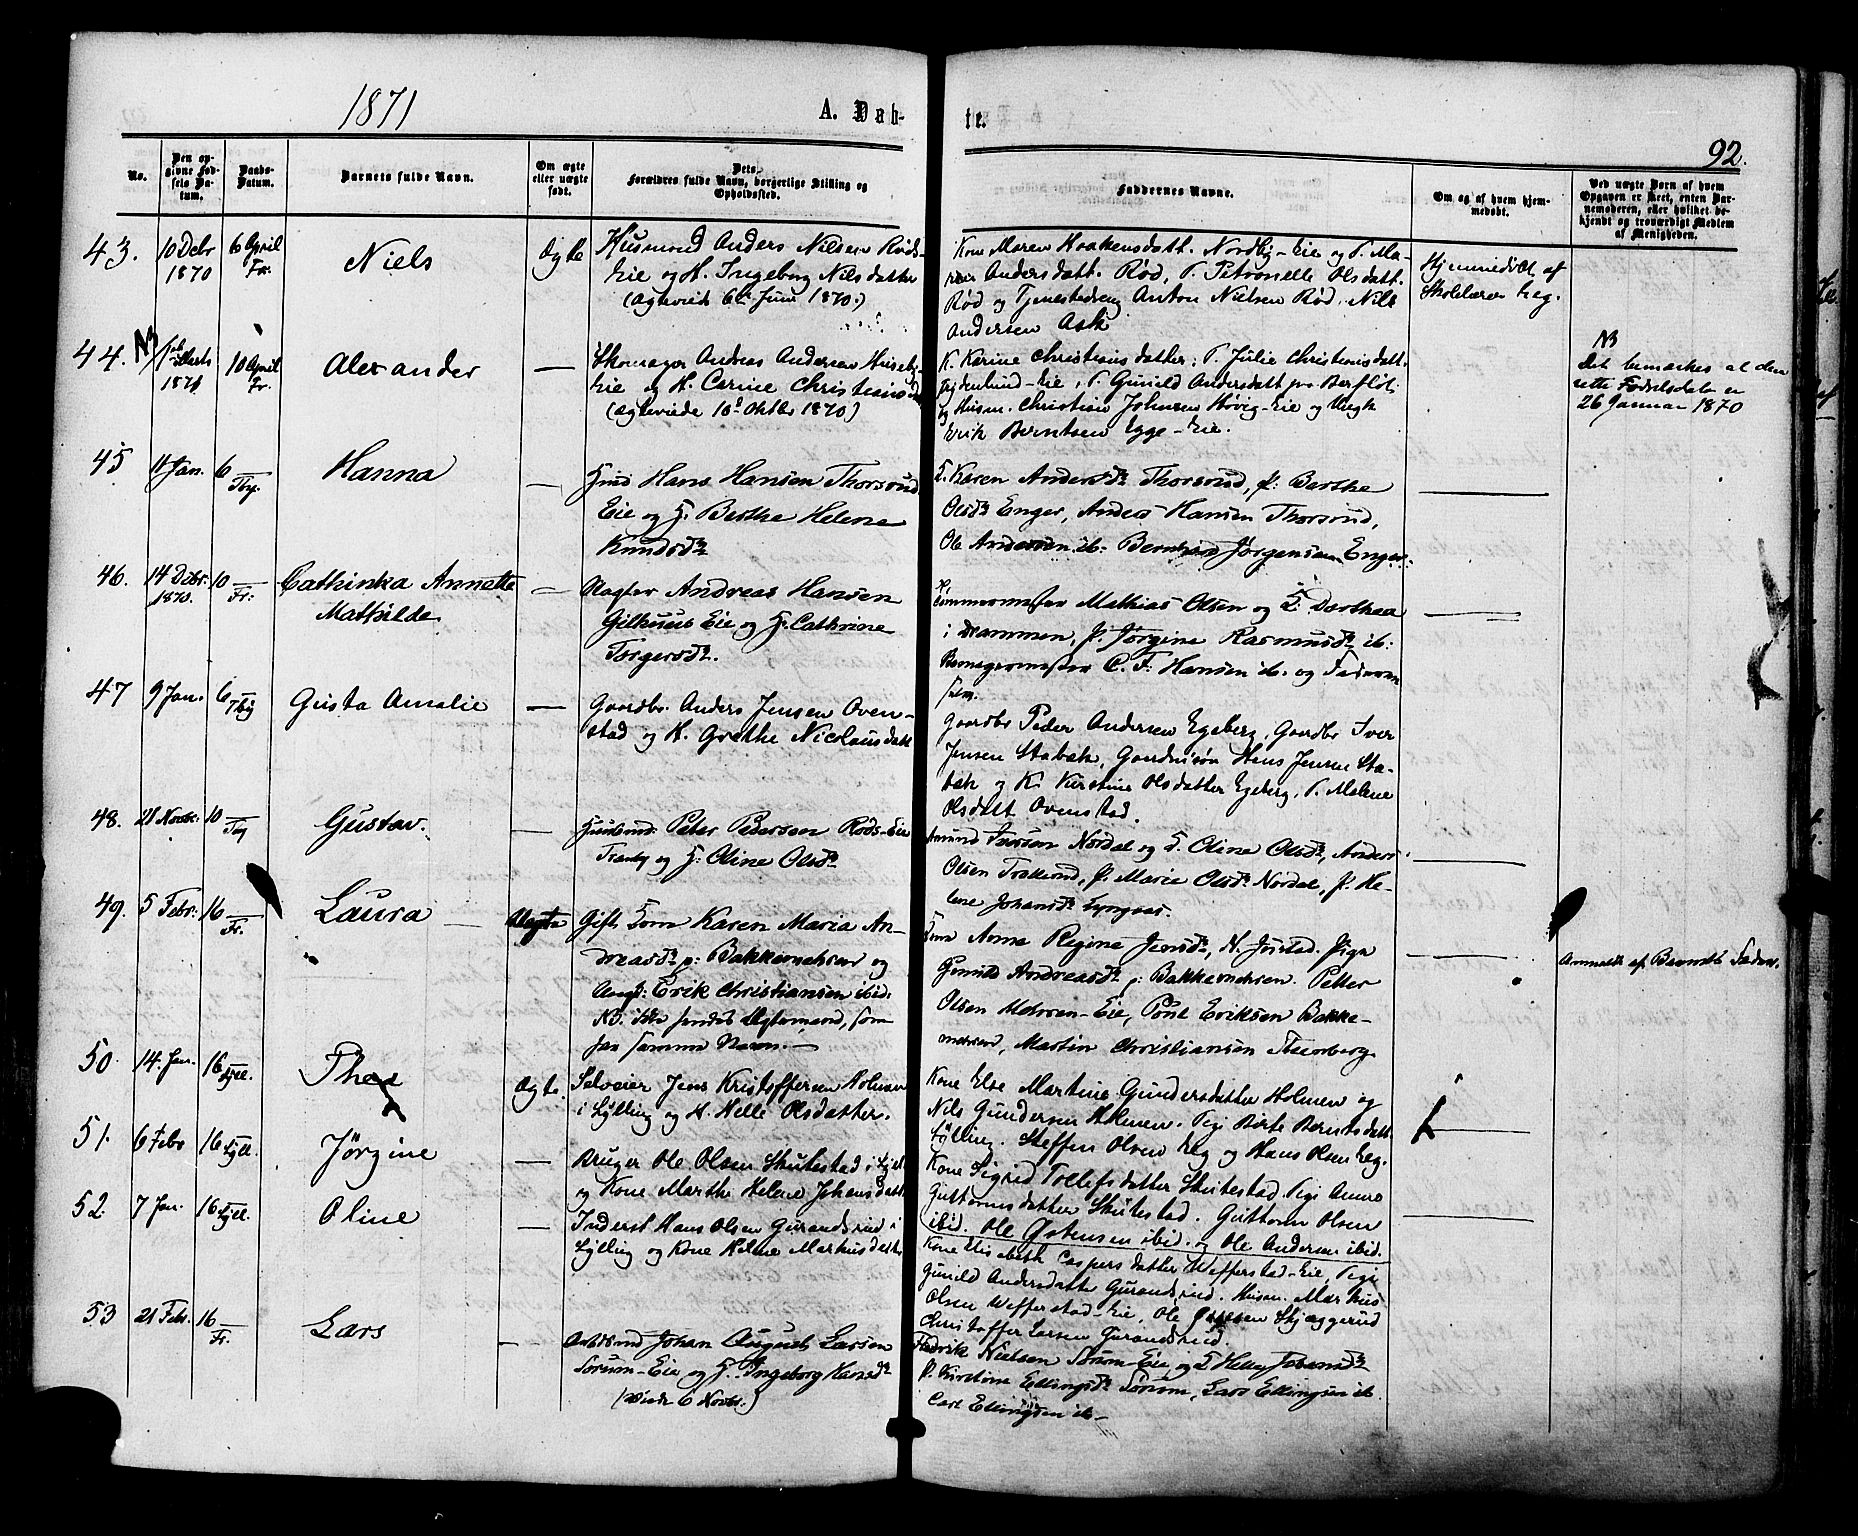 1871
A. Døb-
te.
92.
No.
Den op-
givne Fød-
sels Da-
tum.
Daabs-
Datum.
Barnets fulde Navn.
Om ægte
eller uægte
født.
Dets
Forældres fulde Navn, borgerlige Stilling og
Opholdssted.
Faddernes Navne.
Om og af hvem hjem-
medøbt.
Ved uægte Børn af hvem
Opgaven er skeet, enten Bar-
nemoderen, eller hvilket be-
kjendt og troværdigt Medlem
af Menigheden.
43. 10 Debr 6 April Niels Ægte Husmand Anders Nilsen Røds-
1870 Fr.
Eie og H. Ingeborg Nilsdatter
(Ægteviede 6te Juni 1870.)
Kone Maren Haakensdatt. Nordby-Eie og P. Ma-
ren Andersdatt. Rød, P. Petronelle Olsdatt.
Rød og Tjenestedreng Anton Nielsen Rød. Nils
Andersen Ask
Hjemmedøbt af
Skolelærer Eeg.
44. NB 1ste Marts 10 April Alexander — Skomager Andreas Andersen Huseby-
1871 Fr.
Eie og H. Carine Christiansd
(Ægteviede 10d Oktbr 1870)
K. Karine Christiansdatter; P. Julie Christiansdatt.
Eie, P. Gunild Andersdatt
og Husm. Christian Johnsen Høvig-Eie og Ungk
Erik Berntsen Egge-Eie.
NB
Det bemærkes at den
rette Fødselsdato er
26 Januar 1870
45 11 Jan. 6 — Thy. Hanna — Hans Hansen Thorsrud
Eie og H. Berthe Helene
Knudsdr
Karen Andersdr Thorsrud, P. Berthe
Olsdr Enger, Anders Hansen Thorsrud,
Ole Andersen ib. Bernhard Jørgensen Enger.
46. 14 Debr. 10 — Cathinka Annette — Slagter Andreas Hansen
1870. Fr. Mathilde
Gilhuus Eie og H. Cathrine
Torgersdr.
Tømmermester Mathias Olsen og H. Dorthea
i Drammen, P. Jørgine Rasmusdr ib.
C. F. Hansen ib. og Faderen
selv.
47 9 Jan. 6 Thy Gusta Amalie — Gaardbr. Anders Jensen Oven-
stad og H. Grethe Nicolausdatt
Gaardbr Peder Andersen Egeberg, Gaardbr Iver
Jensen Stabæk, Hans Jensen Sta-
bæk og K. Kirstine Olsdatter Egeberg, P. Malene
Olsdatt Ovenstad.
48. 21 Novbr: 10 — Thy Gustav. — Peter Pedersen Røds-Eie
Tranby og H: Oline Olsdr
Amund Iversen Nordal og H. Oline Olsdr, Anders
Olsen P. Marie Olsdr Nordal, P. He-
lene Johansdr Lyngaas.
49. 5 Febr: 16 — Fr. Laura — Uægte Gift Karen Maria An-
dreasdr p: Bakkemehren og
Ungk: Erik Christiansen ibid.
NB.
Anna Regine Jensdr, N. Justad. Pige
Gunild Andreasdr p: Bakkemehren. Petter
Olsen Mehren-Eie, Poul Eriksen Bakke-
mehren, Martin Christiansen
Anmeldt af Barnets Fader.
50. 14. Jan. 16 — Sjell. Thea Ægte. Selveier Jens Kristoffersen Holmen
i Sylling og H. Helle Olsdatter.
Kone Else Martine Gundersdatter Holmen og
Nils Gundersen Holmen. Pige Berte Berntsdatt
Sylling. Steffen Olsen Eeg og Hans Olsen Eeg.
51. 6 Febr 16 — Sjell. Jørgine — Bruger Ole Olsen Skutestad i Syll
og Kone Marthe Helene Johansdatt.
Kone Sigrid Tollefsdatter Skutestad. Pige Anne
Guttormsdatter Skutestad. Guttorm Olsen
ibid. Ole Østensen ibid. og Ole Andersen ibid.
52. 7 Jan. 16 — Sjell. Oline — Inderst Hans Olsen Gurandsrud i
Sylling og Kone Helene Markusdatt
Kone Elisabeth Caspersdatter Weffersstad-Eie, Pige
Gunild Andersdatter Gurandsrud. Husm. Markus
Olsen Weffersstad-Eie, Ole Skjæggerud
Christoffer Larsen Gurandsrud
53 21 Febr. 16 — Fr. Lars — Johan August Larsen
Sørum-Eie og H. Ingeborg Hansdr
(Viede 6 Novbr.)
Fredrik Nielsen Sørum-Eie og H Helle Johannesdr
P. Kirstine Ellingsdr Sørum, Lars Ellingsen ib
Carl Ellingsen ib —